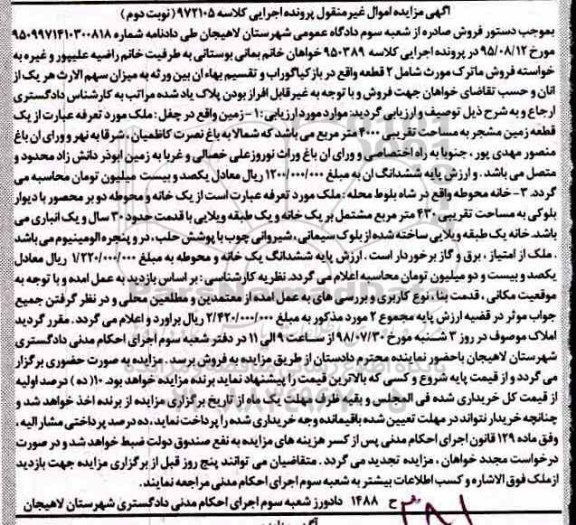 آگهی مزایده اموال غیرمنقول پرونده اجرایی کلاسه ۹۷۲۱۰۵ (نوبت دوم)
بموجب دستور فروش صادره از شعبه سوم دادگاه عمومی شهرستان لاهیجان طی دادنامه شماره ۹۵۰۹۹۷۱۴۱۰۳۰۰۸۱۸
مورخ ۹۵/۰۸/۱۲ در پرونده اجرایی کلاسه ۹۵۰۳۸۹ خواهان خانم بمانی بوستانی به طرفیت خانم راضیه علیپور و غیره به
خواسته فروش ماترک مورث شامل ۲ قطعه واقع در بازکیاگوراب و تقسیم بهاء ان بین ورثه به میزان سهم الارث هر یک از
انان و حسب تقاضای خواهان جهت فروش و با توجه به غیرقابل افراز بودن پلاک یاد شده مراتب به کارشناس دادگستری
ارجاع و به شرح ذیل توصیف و ارزیابی گردید: موارد مورد ارزیابی: ۱- زمین واقع در چفل: ملک مورد تعرفه عبارت از یک
قطعه زمین مشجر به مساحت تقریبی ۴۰۰۰ متر مربع می باشد که شمالا به باغ نصرت کاظمیان، شرقا به نهر و ورای ان باغ
منصور مهدی پور، جنوبا به راه اختصاصی و ورای ان باغ وراث نوروزعلی خصالی و غربا به زمین ابوذر دانش زاد محدود و
متصل می باشد. و ارزش پایه ششدانگ ان به مبلغ ۱۲۰۰/۰۰۰/۰۰۰ ریال معادل یکصد و بیست میلیون تومان محاسبه می
گردد. ۲- خانه محوطه واقع در شاه بلوط محله: ملک مورد تعرفه عبارت است از یک خانه و محوطه دو بر محصور با دیوار
بلوکی به مساحت تقریبی ۴۳۰ متر مربع مشتمل بر یک خانه و یک طبقه ویلایی با قدمت حدود ۳۰ سال و یک انباری می
باشد. خانه یک طبقه ویلایی ساخته شده از بلوک سیمانی، شیروانی چوب با پوشش حلب، در و پنجره الومینیوم می باشد
. ملک از امتیاز، برق و گاز برخوردار است. ارزش پایه ششدانگ یک خانه و محوطه به مبلغ ۱/۲۲۰/۰۰۰/۰۰۰ ریال معادل
یکصد و بیست و دو میلیون تومان محاسبه اعلام می گردد. نظریه کارشناسی: بر اساس بازدید به عمل امده و با توجه به
موقعیت مکانی، قدمت بنا، نوع کاربری و بررسی های به عمل امده از معتمدین و مطلعین محلی و در نظر گرفتن جمیع
جواب موثر در قضیه ارزش پایه مجموع ۲ مورد مذکور به مبلغ ۲/۴۲۰/۰۰۰/۰۰۰ ریال براورد و اعلام می گردد. مقرر گردید
املاک موصوف در روز ۳ شنبه مورخ ۹۸/۰۷/۳۰ از ساعت ۹ الی ۱۱ در دفتر شعبه سوم اجرای احکام مدنی دادگستری
شهرستان لاهیجان با حضور نماینده محترم دادستان از طریق مزایده به فروش برسد. مزایده به صورت حضوری برگزار
می گردد و از قیمت پایه شروع و کسی که بالاترین قیمت را پیشنهاد نماید برنده مزایده خواهد بود. ۱۰(ده) درصد اولیه
از قیمت کل خریداری شده فی المجلس و بقیه ظرف مهلت یک ماه از تاریخ برگزاری مزایده از برنده اخذ خواهد شد و
چنانچه خریدار نتواند در مهلت تعیین شده باقیمانده وجه خریداری شده را پرداخت نماید، ده درصد پرداختی مشارالیه،
وفق ماده ۱۲۹ قانون اجرای احکام مدنی پس از کسر هزینه های مزایده به نفع صندوق دولت ضبط خواهد شد و در صورت
درخواست مجدد خواهان، مزایده تجدید می گردد. متقاضیان می توانند پنج روز قبل از برگزاری مزایده جهت بازدید
از ملک فوق الاشاره و کسب اطلاعات بیشتر به شعبه سوم اجرای احکام مدنی مراجعه نمایند.
ح ۱۴۸۸ دادورز شعبه سوم اجرای احکام مدنی دادگستری شهرستان لاهیجان